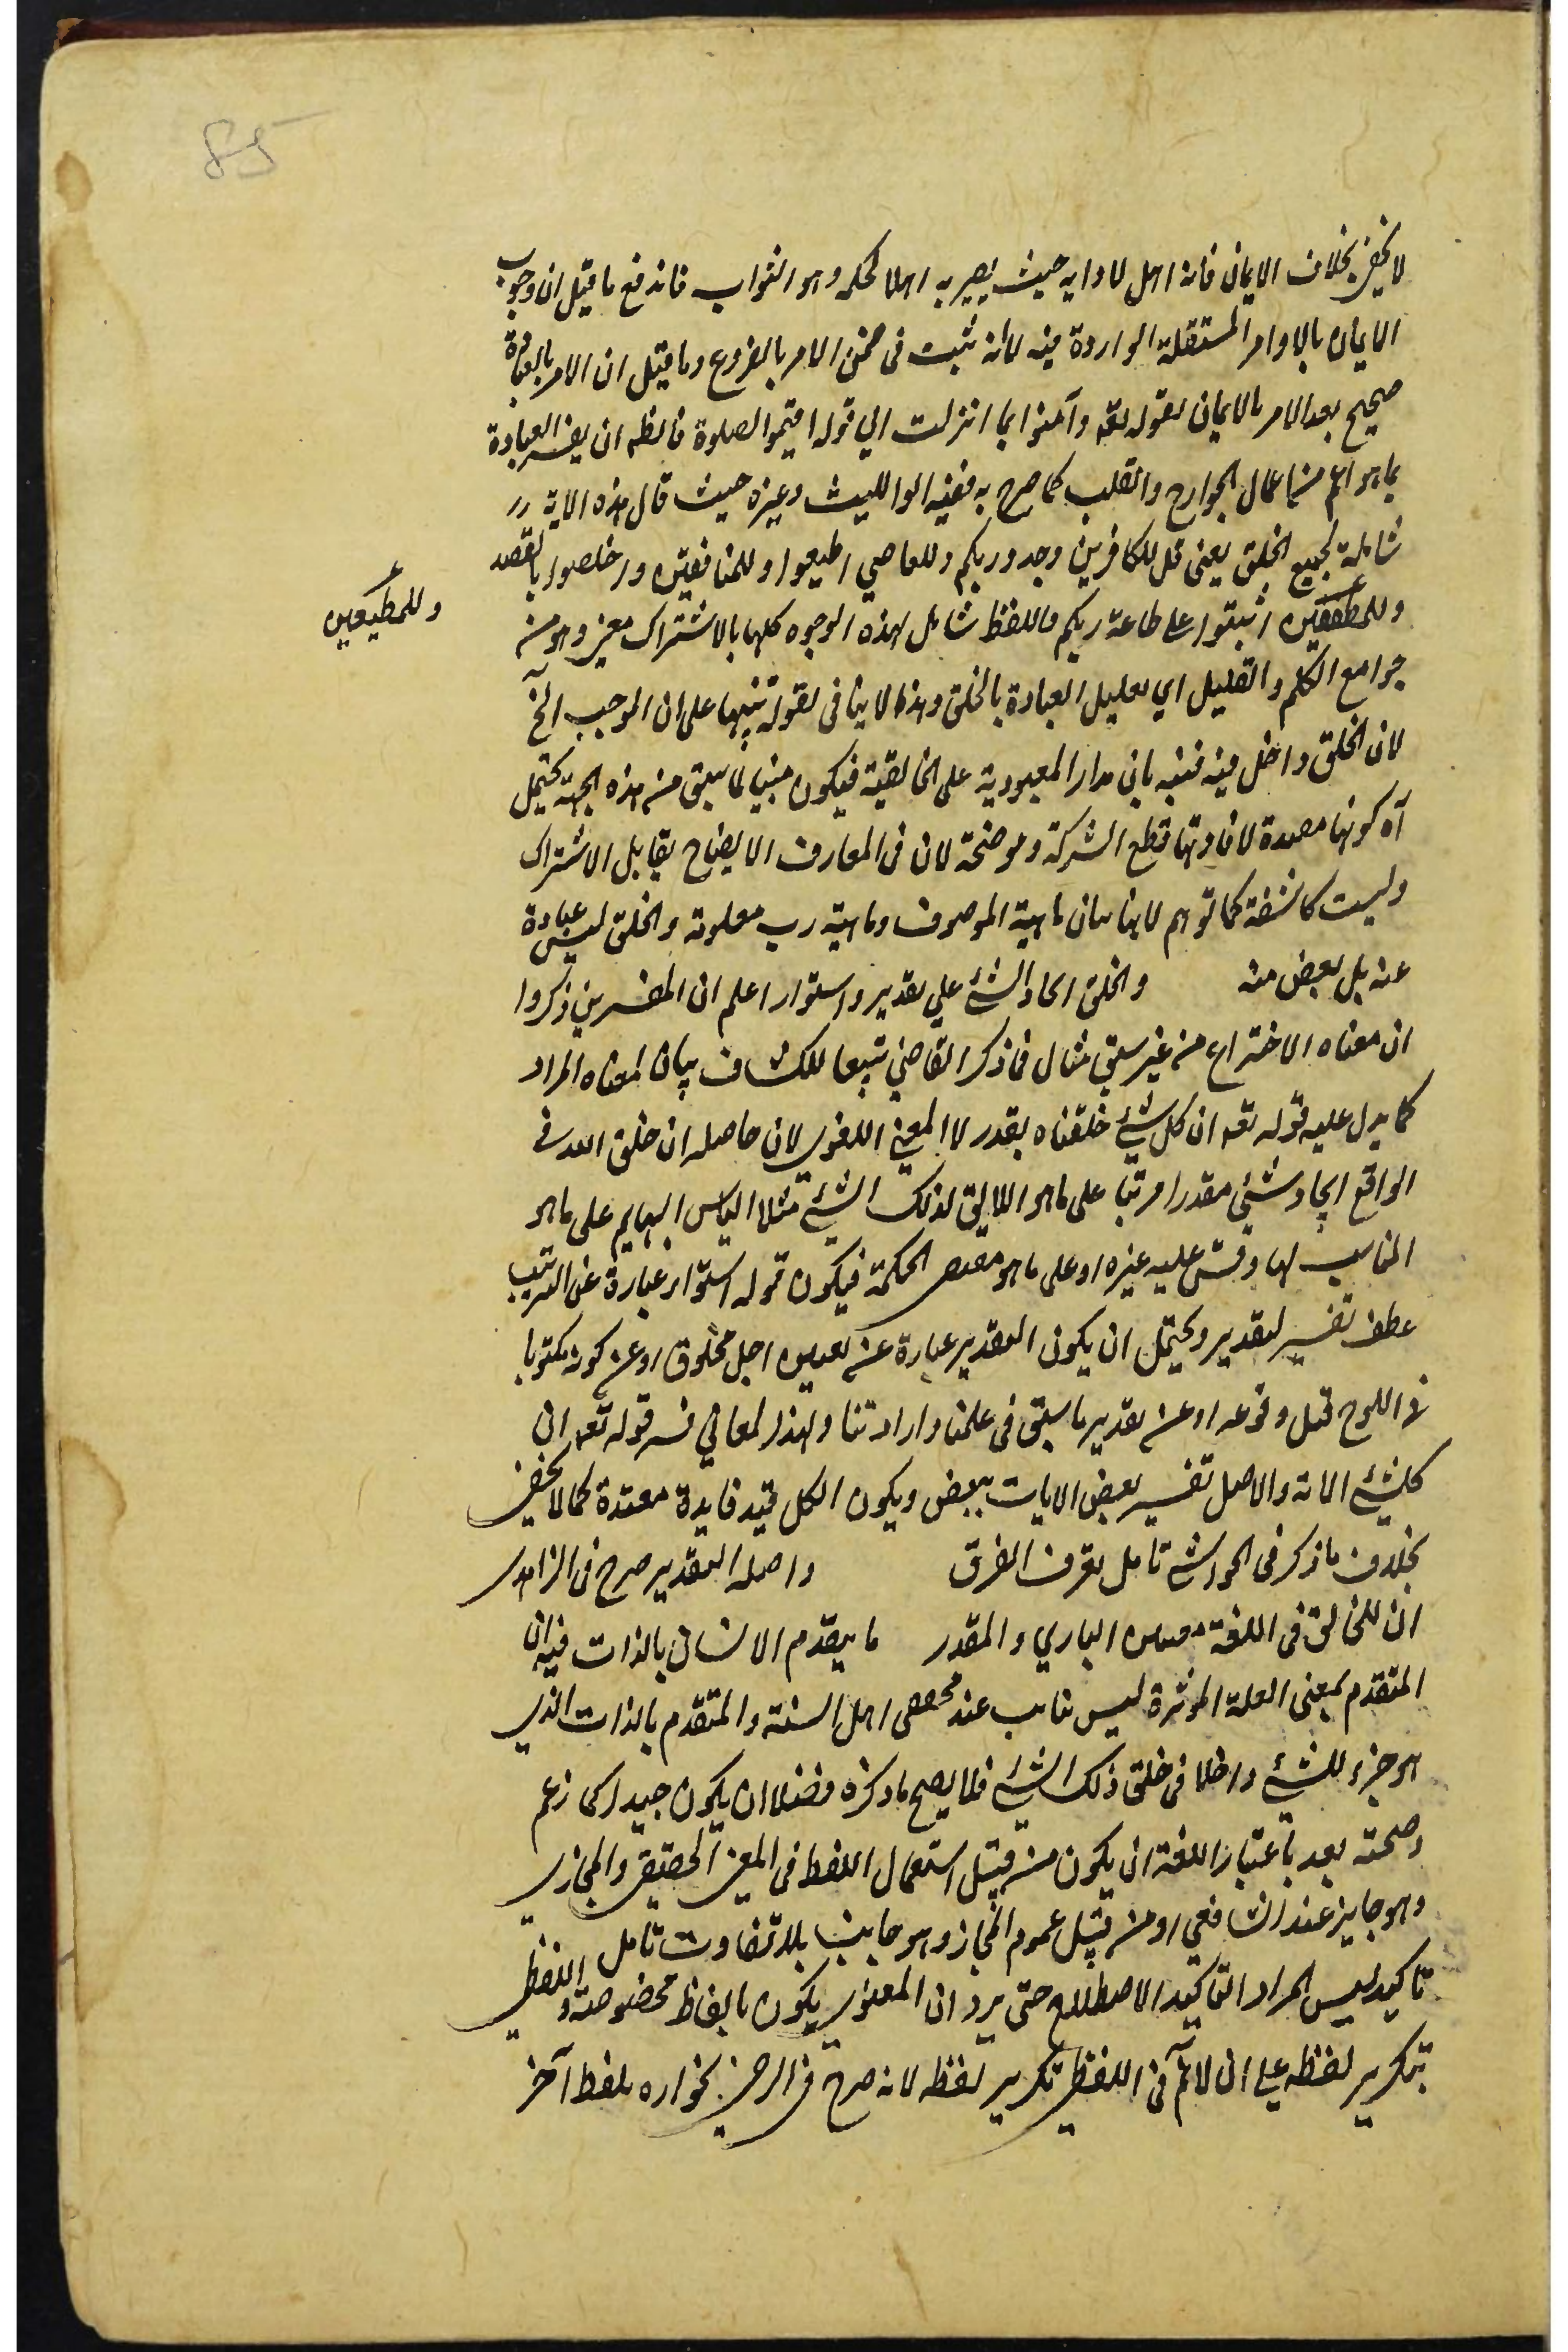 85
لا يخفى بخلاف الايمان فانه اهل لادايه حيث يصير به اهلا لحكمه وهو الثواب فاندفع ما قيل ان وجوب
الايمان بالاوامر المستقلة الواردة فيه لا انه ثبت فى ضمن الامر بالفروع وما قيل ان الامر بالعبادة
صحيح بعد الامر بالايمان لقوله تعه وآمنوا بما انزلت الي قوله اقيموا الصلوة فالظه ان يفسر العبادة
بما هو اعم من اعمال الجوارح والقلب كما صرح به فقيه ابو الليث وغيره حيث قال هذه الاية
شاملة لجميع الخلق يعنى قل للكافرين وحدوا ربكم وللعاصي اطيعوا وللمنافقين اخلصوا بالقصد
وللمطيعين
اثبتوا على طاعة ربكم فاللفظ شامل لهذه الوجوه كلها بالاشتراك معنى وهو من
جوامع الكلم والتعليل اي تعليل العبادة بالخلق وهذا لا ينافى لقوله تنبيها على ان الموجب الخ
لان الخلق داخل فيه فنبه بان مدار المعبودية على الخالقية فيكون مبنيا لما سبق من هذه الجهة يحتمل
آه كونها مقيدة لافادتها قطع الشركة وموضحة لان فى المعارف الايضاح يقابل الاشتراك
وليست كاشفة كما توهم لانها بيان ماهية الموصوف وماهية رب معلومة والخلق ليس عبادة
عنه بل بعض منه والخلق ايجاد الشئ علي تقدير واستواء اعلم ان المفسرين ذكروا
ان معناه الاختراع من غير سبق مثال فما ذكر القاضي تبعا للكشاف بيان لمعناه المراد
كما يدل عليه قوله تعه ان كل شئ خلقناه بقدر لا المعنى اللغوى لان حاصله ان خلق الله فى
الواقع ايجاد شئ مقدرا مرتبا على ما هو اللايق لذلك الشئ مثلا الباس البهايم على ما هو
المناسب لها وقس عليه غيره او على ما هو مقتضى الحكمة فيكون قوله استواء عبارة عن الترتيب
عطف تفسير لتقدير ويحتمل ان يكون التقدير عبارة عن تعيين اجل مخلوق او عن كونه مكتوبا
فى اللوح قبل وقوعه او عن تقدير ما سبق فى علمنا وارادتنا ولهذا المعاني فسر قوله تعه ان
كل شئ الاية والاصل تفسير بعض الايات ببعض ويكون الكل قيد فايدة معتدة كما لا يخفى
بخلاف ما ذكر فى الحواشي تامل تعرف الفرق واصله التقدير صرح فى الزاهدى
ان للخالق فى اللغة معنيين الباري والمقدر ما يتقدم الانسان بالذات فيه ان
المتقدم بمعنى العلة المؤثرة ليس ثابت عند محققى اهل السنة والمتقدم بالذات الذي
هو جزء للشئ داخلا فى خلق ذلك الشئ فلا يصح ما ذكره فضلا ان يكون جيدا كما زعم
وصحته بعد باعتبار اللغة ان يكون من قبيل استعمال اللفظ فى المعنى الحقيقى والمجازى
وهو جايز عند الشافعي او من قبيل عموم المجاز وهو جايز بلا تفاوت تامل
تاكيد ليس المراد التاكيد الاصطلاح حتى يرد ان المعنوى يكون بالفاظ مخصوصة واللفظى
بتكرير لفظه على ان لانم ان اللفظى تكرير لفظه لانه صرح فى الرضى بجوازه بلفظ آخر
وللمطيعين